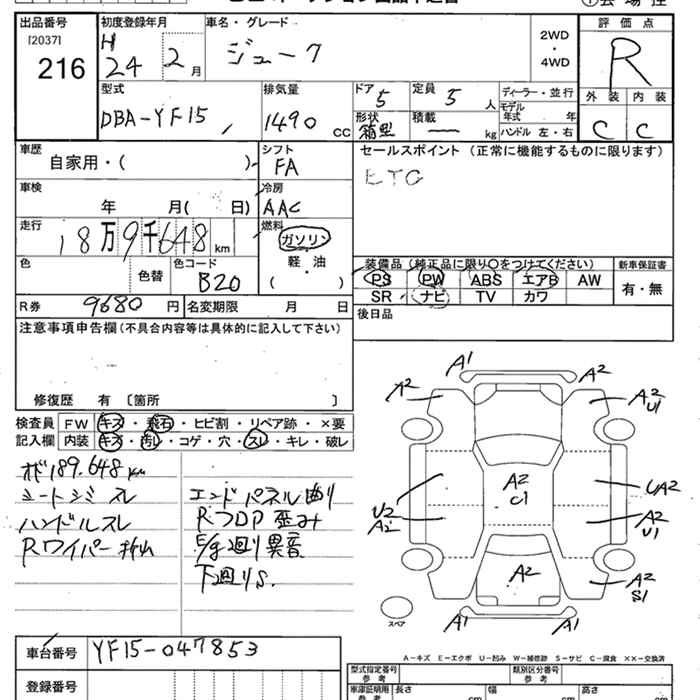 出品番号
[2037]
216
初度登録年月
H
24 2月
車名・グレード
ジューク
2WD
・
4WD
評価点
R
外装 内装
C C
型式
DBA-YF15
排気量
1490 CC
ドア
5
定員
5 人
形状
箱型
積載
kg
ディーラー・並行
モデル
年式 年
ハンドル 左・右
車歴
自家用・( )
シフト
FA
セールスポイント (正常に機能するものに限ります)
ETC
車検
年 月( 日)
冷房
AAC
走行
18万9千648 km
燃料
ガソリン
軽・油
( )
色
色替
色コード
B20
装備品(純正品に限り○をつけてください)
新車保証書
PS PW ABS エアB AW
SR ナビ TV カワ
有・無
R券 9680 円
名変期限 月 日
後日品
注意事項申告欄(不具合内容等は具体的に記入して下さい)
修復歴 有 〔箇所 〕
検査員
記入欄
FW キズ・飛石・ヒビ割・リペア跡・×要
内装 キズ・汚し・コゲ・穴・スレ・キレ・破レ
メーター189.648km
シートシミスレ
ハンドルスレ
Rワイパー折れ
エンドパネル曲り
Rフロア歪み
E/g廻り異音
下廻りS.
A1
A2
A2
A2
U1
A2
U1
U2
A2
UA2
A2
U1
A2
A2
S1
A1
A1
スペア
A-キズ E-エクボ U-凹み W-補修跡 S-サビ C-腐食 ××-交換済
車台番号 YF15-047853
登録番号
型式指定番号
参考
類別区分番号
参考
車庫証明用
参考
長さ cm
幅 cm
高さ cm